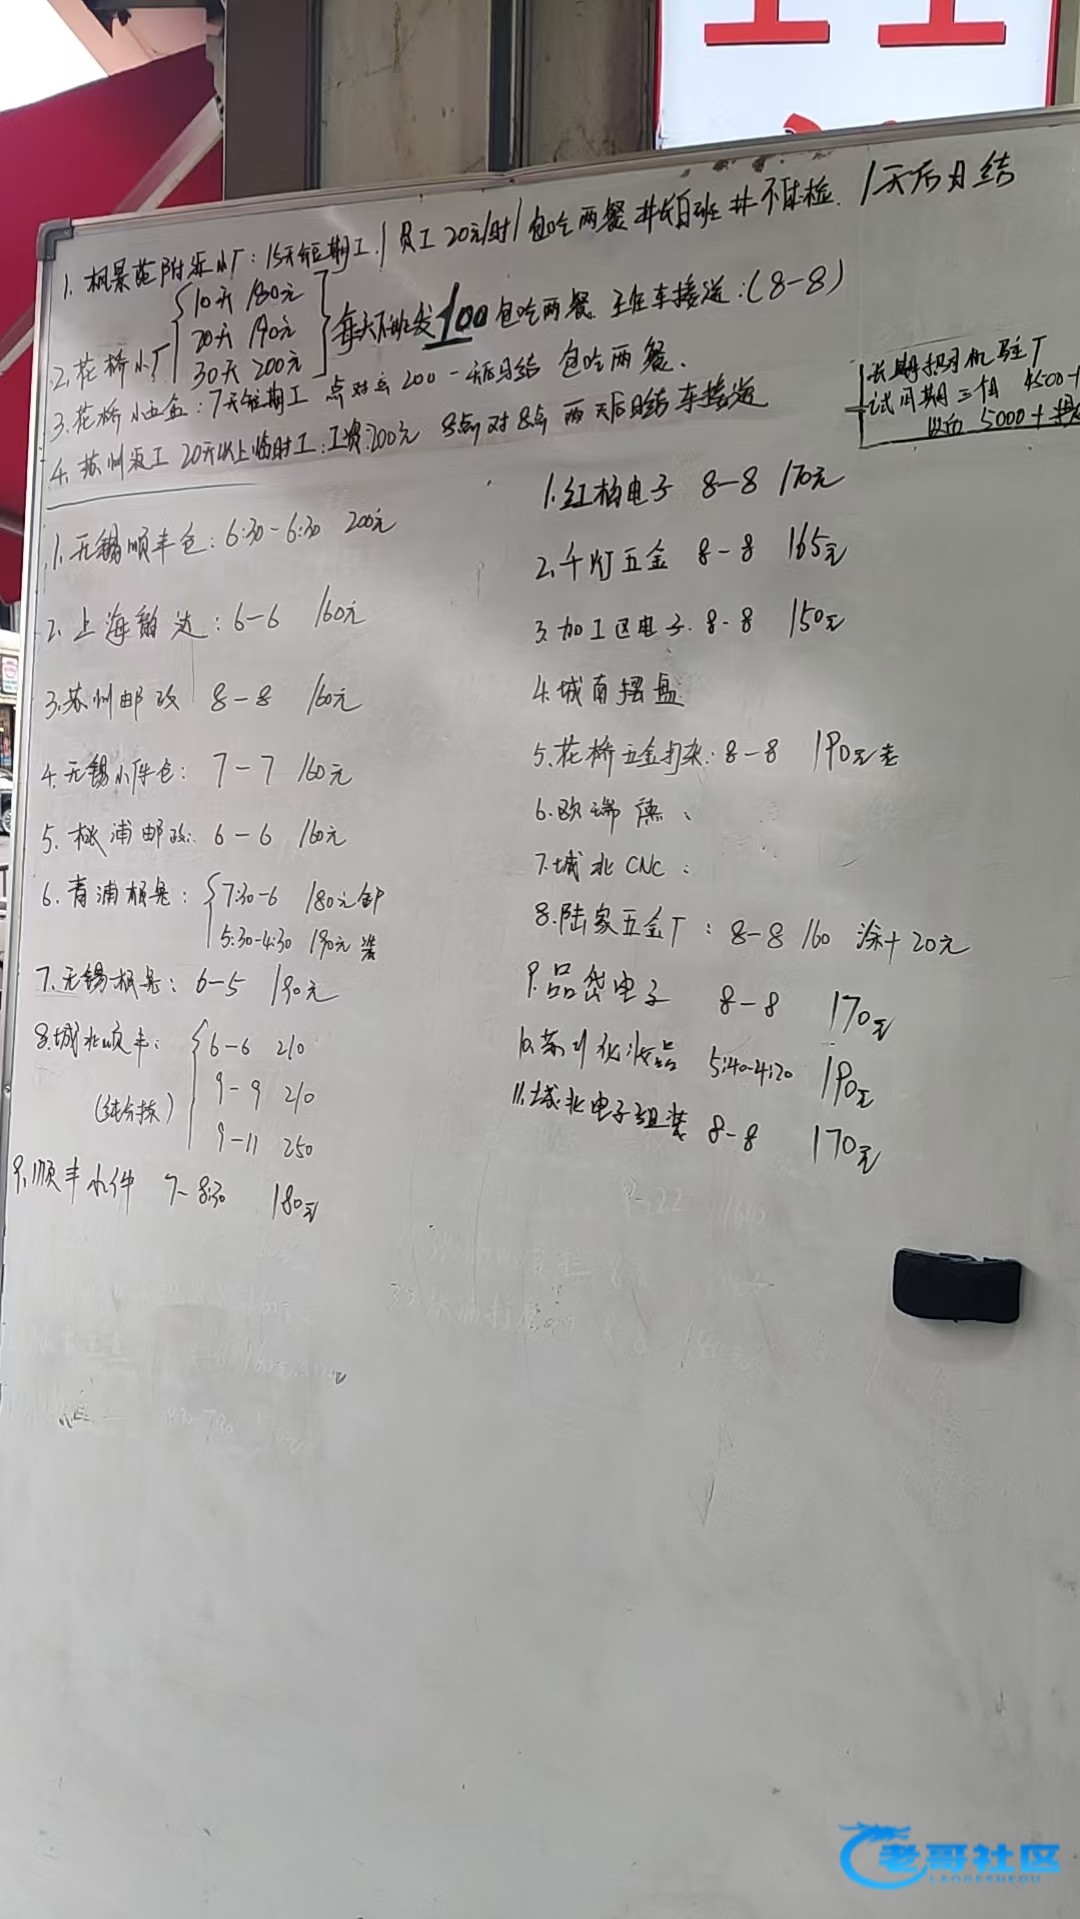 1. 枫景苑附近小厂: 15天短期工 / 员工 20元/时 / 包吃两餐 #长白班 # 不体检. 1天后日结
2. 花桥小厂
10天 180元
20天 190元
30天 200元
每天下班发100 包吃两餐 车接送: (8-8)
3. 花桥小五金: 7天短期工 点对点 200 一天后日结 包吃两餐.
4. 苏州返工 20天以上临时工: 工资:200元 8点对8点 两天后日结 车接送
长期招司机驻厂
试用期三个 4500+
以后 5000+
1. 无锡顺丰仓: 6:30-6:30 200元
2. 上海韵达: 6-6 160元
3. 苏州邮政 8-8 160元
4. 无锡小件仓: 7-7 160元
5. 桃浦邮政: 6-6 160元
6. 青浦极兔:
7:30-6 180元卸
5:30-4:30 190元 装
7. 无锡极兔: 6-5 190元
8. 城北顺丰:
(纯分拣)
6-6 210
9-9 210
9-11 250
9. 顺丰小件 7-8:30 180元
1. 红杨电子 8-8 170元
2. 千灯五金 8-8 165元
3. 加工区电子. 8-8 150元
4. 城南摆盘
5. 花桥五金打杂: 8-8 190元
6. 欧瑞德、
7. 城北CNC:
8. 陆家五金厂: 8-8 160 涂+20元
9. 品岱电子 8-8 170元
10. 苏州化妆品 5:40-4:20 190元
11. 城北电子组装 8-8 170元
老哥社区
LAOGESHEQU